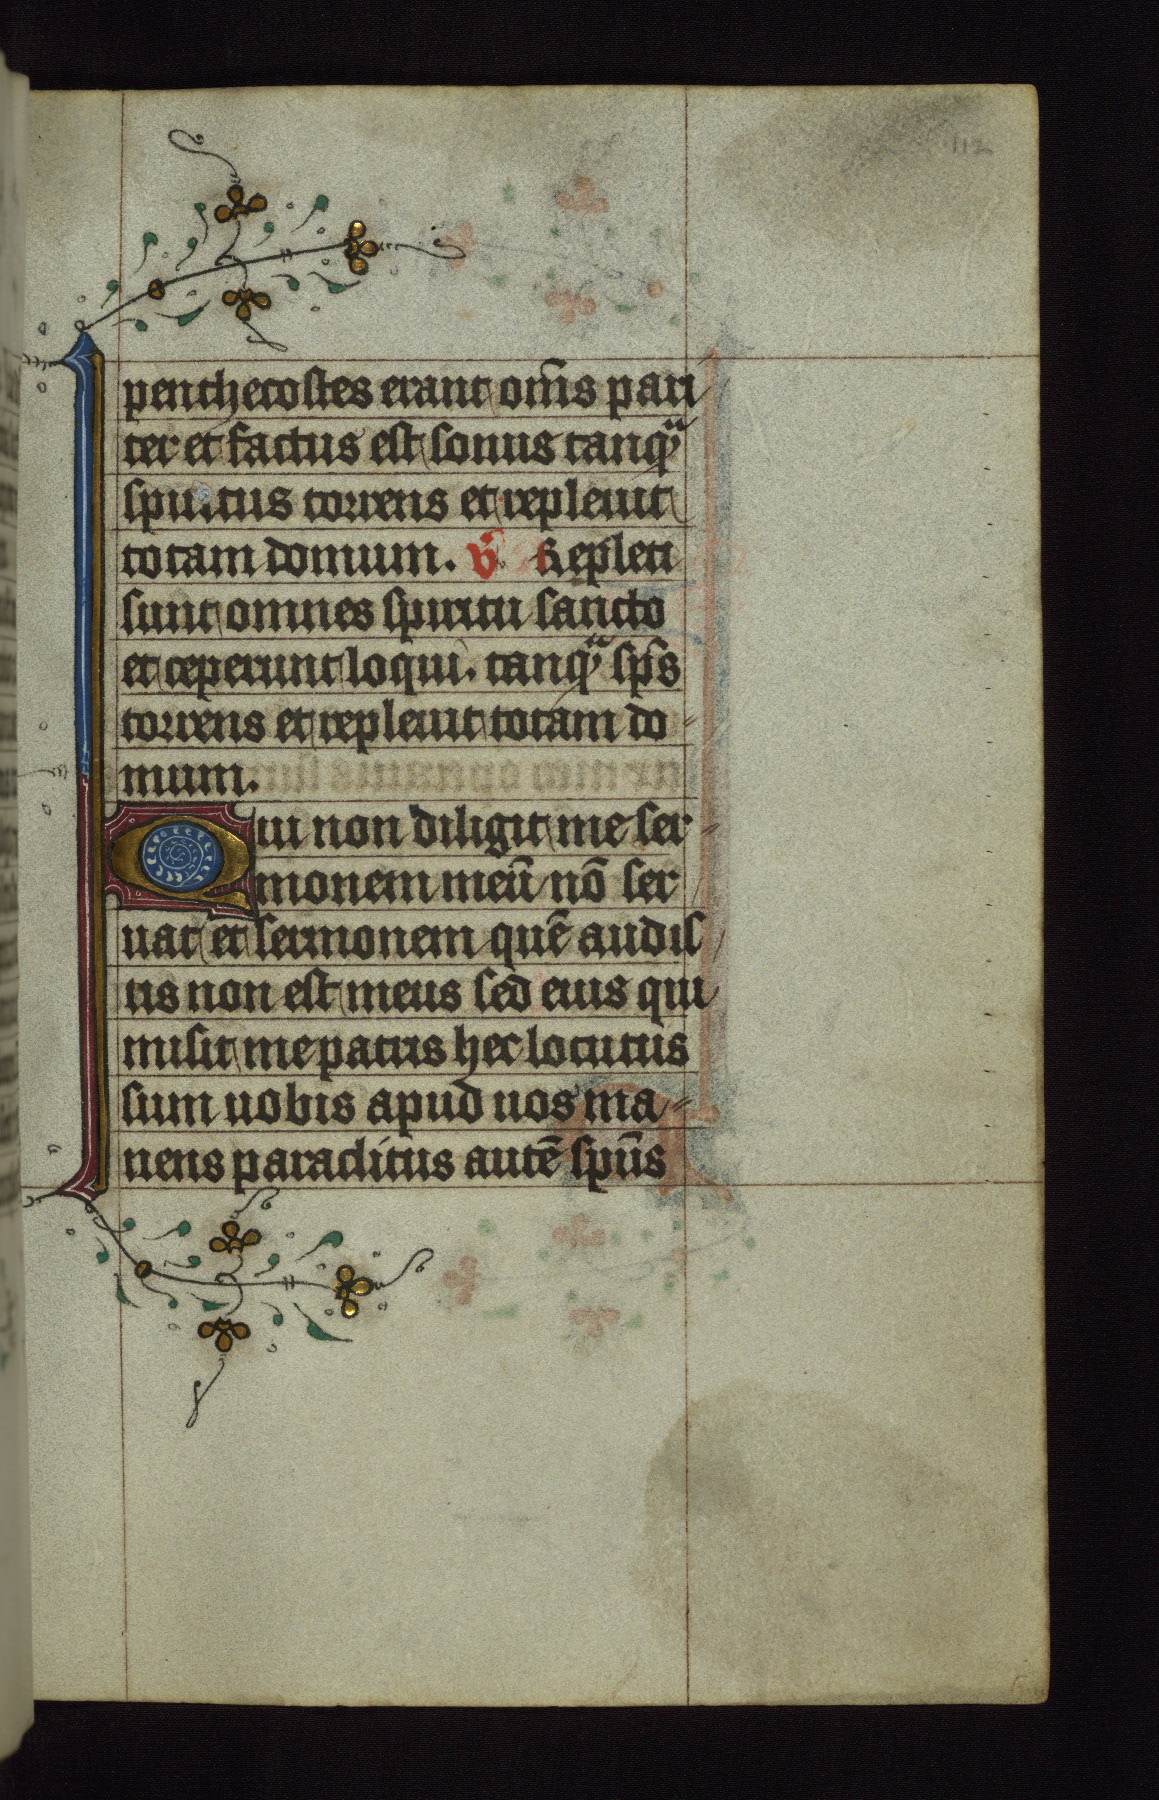 112
penthecostes erant om̄s pari
ter et factus est sonus tanqᷓ
spiritus torrens et repleuit
totam domum. v̄. Repleti
sunt omnes spiritu sancto
et ceperunt loqui. tanqᷓ sp̄s
torrens et repleuit totam do
mum.
Qui non diligit me ser
monem meū nō ser
uat et sermonem quē audis
tis non est meus sed eius qui
misit me patris hec locutus
sum uobis apud uos ma
nens paraclitus autē spūs